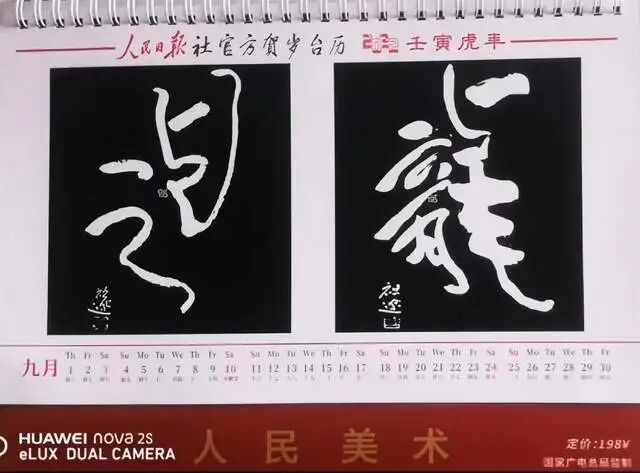 人民日报社官方贺岁台历 2022 壬寅虎年
龍
九月 Th Fr Sa Su Mo Tu We Th Fr Sa Su Mo Tu We Th Fr Sa Su Mo Tu We Th Fr Sa Su Mo Tu We Th Fr
1 2 3 4 5 6 7 8 9 10 11 12 13 14 15 16 17 18 19 20 21 22 23 24 25 26 27 28 29 30
HUAWEI nova 2S
eLUX DUAL CAMERA
人民美术
定价:198¥
国家广电总局监制